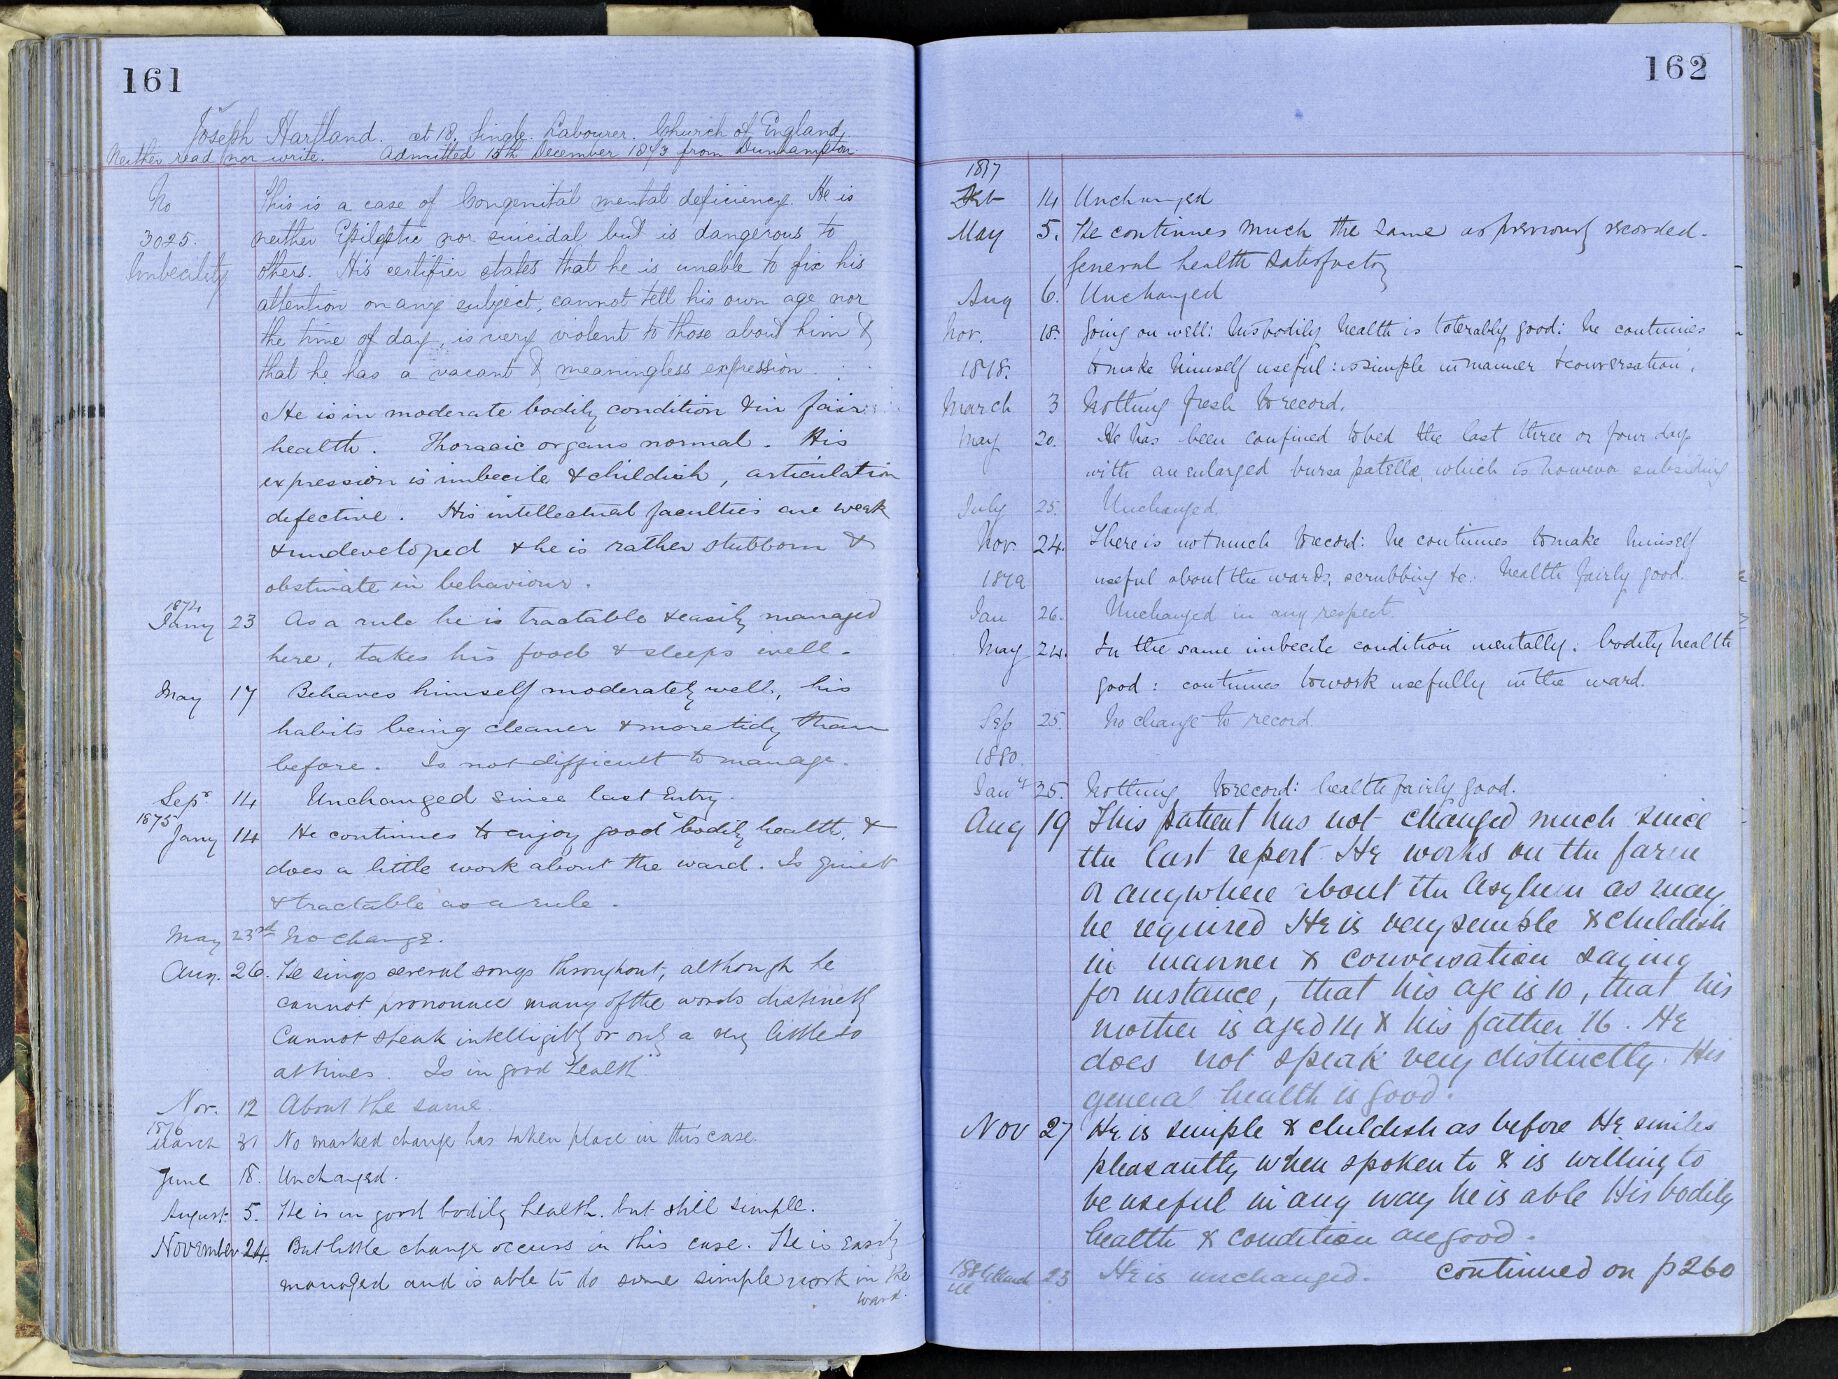 161
Joseph Hartland. æt 18. Single. Labourer. Church of England,
Neither read nor write. Admitted 15th December 1873 from Dunhampton.
No
3025.
Imbecility
This is a case of Congenital mental deficiency. He is
neither Epileptic nor suicidal but is dangerous to
others. His certifier states that he is unable to fix his
attention on any subject, cannot tell his own age nor
the time of day, is very violent to those about him &
that he has a vacant & meaningless expression.
He is in moderate bodily condition & in fair
health. Thoracic organs normal. His
expression is imbecile & childish, articulation
defective. His intellectual faculties are weak
& undeveloped & he is rather stubborn &
obstinate in behaviour.
1874
Janry 23 As a rule he is tractable & easily managed
here, takes his food & sleeps well.
May 17 Behaves himself moderately well, his
habits being cleaner & more tidy than
before. Is not difficult to manage.
Sepr 14 Unchanged since last Entry.
1875
Janry 14 He continues to enjoy good bodily health, &
does a little work about the ward. Is quiet
& tractable as a rule.
May 23rd No change.
Aug. 26. He sings several songs throughout, although he
cannot pronounce many of the words distinctly
Cannot speak intelligibly or only a very little so
at times. Is in good health
Nov. 12 About the same.
1876
March 31 No marked change has taken place in this case.
June 18. Unchanged.
August 5. He is in good bodily health. but still simple.
November 24. But little change occurs in this case. He is easily
managed and is able to do some simple work in the
ward.
162
1877
Feb 14 Unchanged
May 5. He continues much the same as previously recorded.
General health satisfactory
Aug 6. Unchanged
Nov. 18. Going on well: his bodily health is tolerably good: he continues
to make himself useful: is simple in manner & conversation.
1878.
March 3 Nothing fresh to record.
May 20. He has been confined to bed the last three or four days
with an enlarged bursa patellæ, which is however subsiding
July 25. Unchanged.
Nov. 24. There is not much to record: he continues to make himself
useful about the wards, scrubbing &c. health fairly good.
1879
Jan 26. Unchanged in any respect.
May 24. In the same imbecile condition mentally: bodily health
good: continues to work usefully in the ward.
Sep 25. No change to record.
1880.
Jany 25. Nothing to record: health fairly good.
Aug 19 This patient has not changed much since
the last report He works on the farm
or anywhere about the Asylum as may
be required He is very simple & childish
in manner & conversation saying
for instance, that his age is 10, that his
mother is aged 14 & his father 16. He
does not speak very distinctly. His
general health is good.
Nov 27 He is simple & childish as before He smiles
pleasantly when spoken to & is willing to
be useful in any way he is able His bodily
health & condition are good.
March 23 He is unchanged. continued on p260